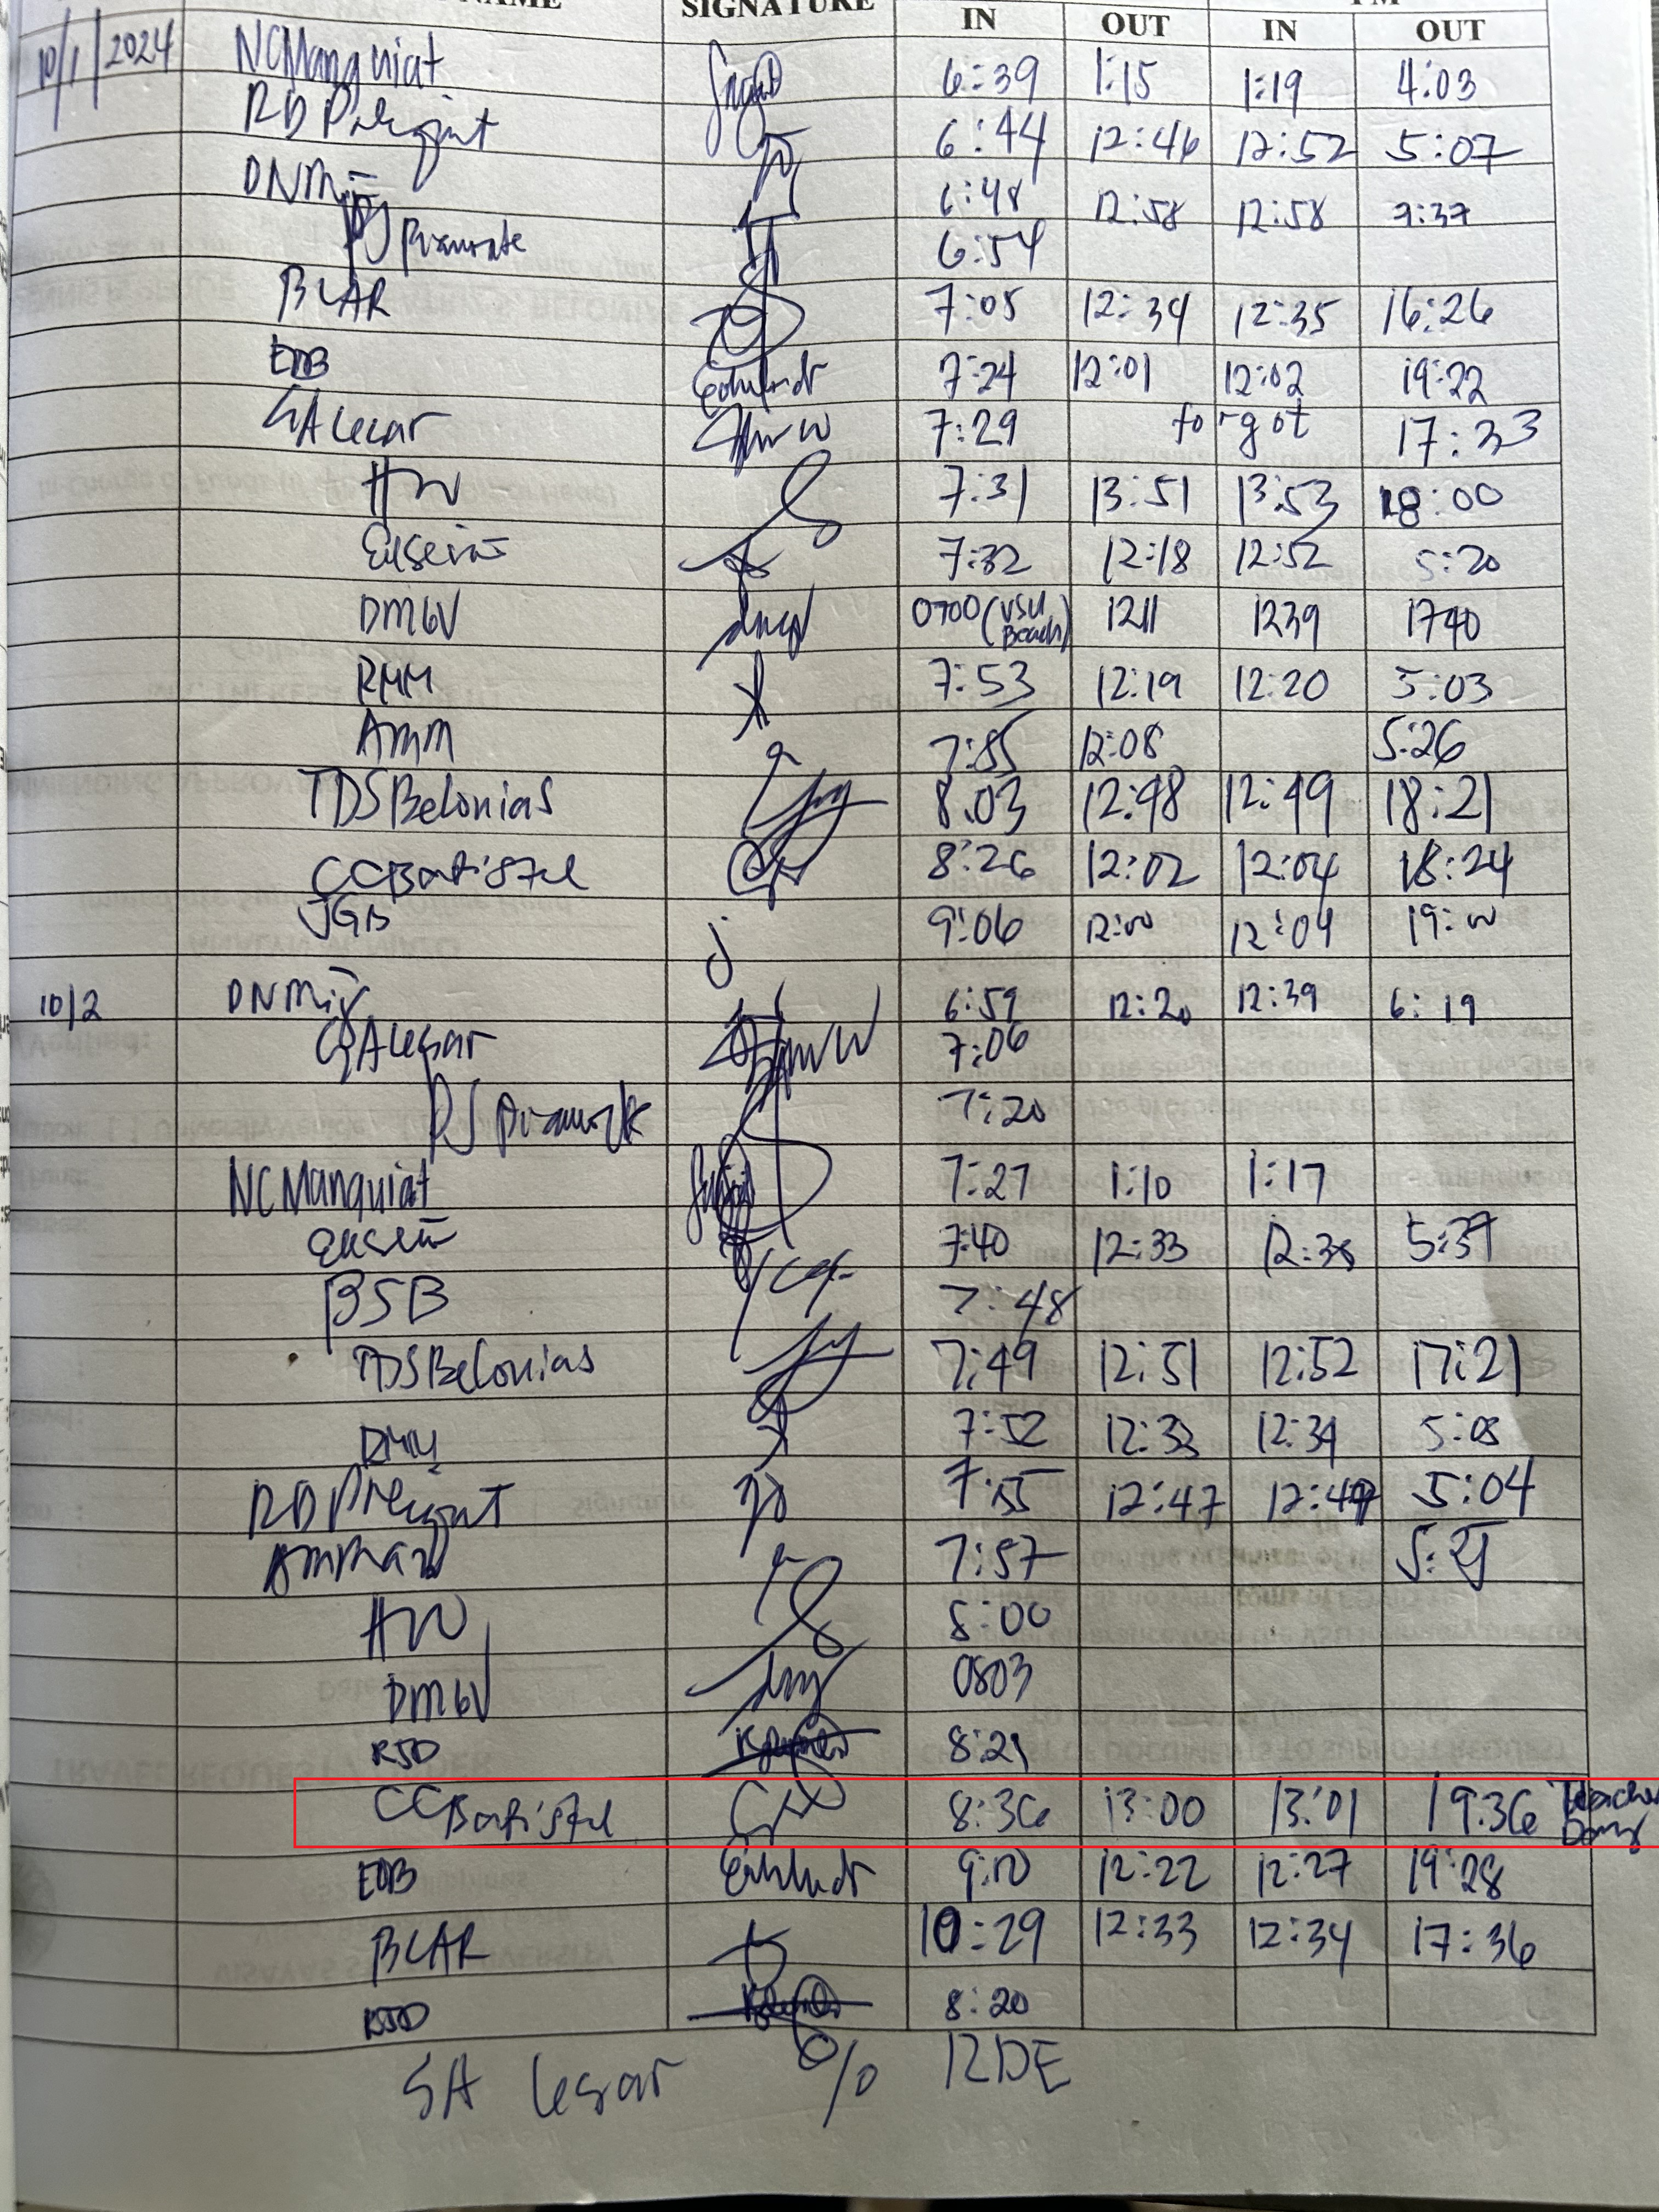 NAME SIGNATURE IN OUT IN OUT
10/1/2024 NCManquiat 6:39 1:15 1:19 4:03
6:44 12:46 12:52 5:07
6:48 12:58 12:58 7:37
6:54
BLAR 7:05 12:34 12:35 16:26
EDB 7:24 12:01 12:02 19:22
SALesar 7:29 forgot 17:33
HW 7:31 13:51 13:53 18:00
7:32 12:18 12:52 5:20
DMGV 0700 (VSU Beach) 1211 1239 1740
RMM 7:53 12:19 12:20 5:03
AMM 7:55 12:08 5:26
TDSBelonias 8:03 12:48 12:49 18:21
CCBatistel 8:26 12:02 12:04 18:24
JGB j 9:06 12:00 12:04 19:00
10/2 6:59 12:20 12:39 6:19
SALesar 7:06
7:20
NCManquiat 7:27 1:10 1:17
7:40 12:33 5:37
BSB 7:48
TDSBelonias 7:49 12:51 12:52 17:21
RMM 7:52 12:33 12:34 5:03
7:55 12:47 5:04
7:57
HW 8:00
DMGV 0803
RJD 8:21
CCBatistel 8:36 13:00 13:01 19:36
EDB 12:22 12:27 19:28
BLAR 10:29 12:33 12:34 17:36
8:20
SA Lesar % RDE